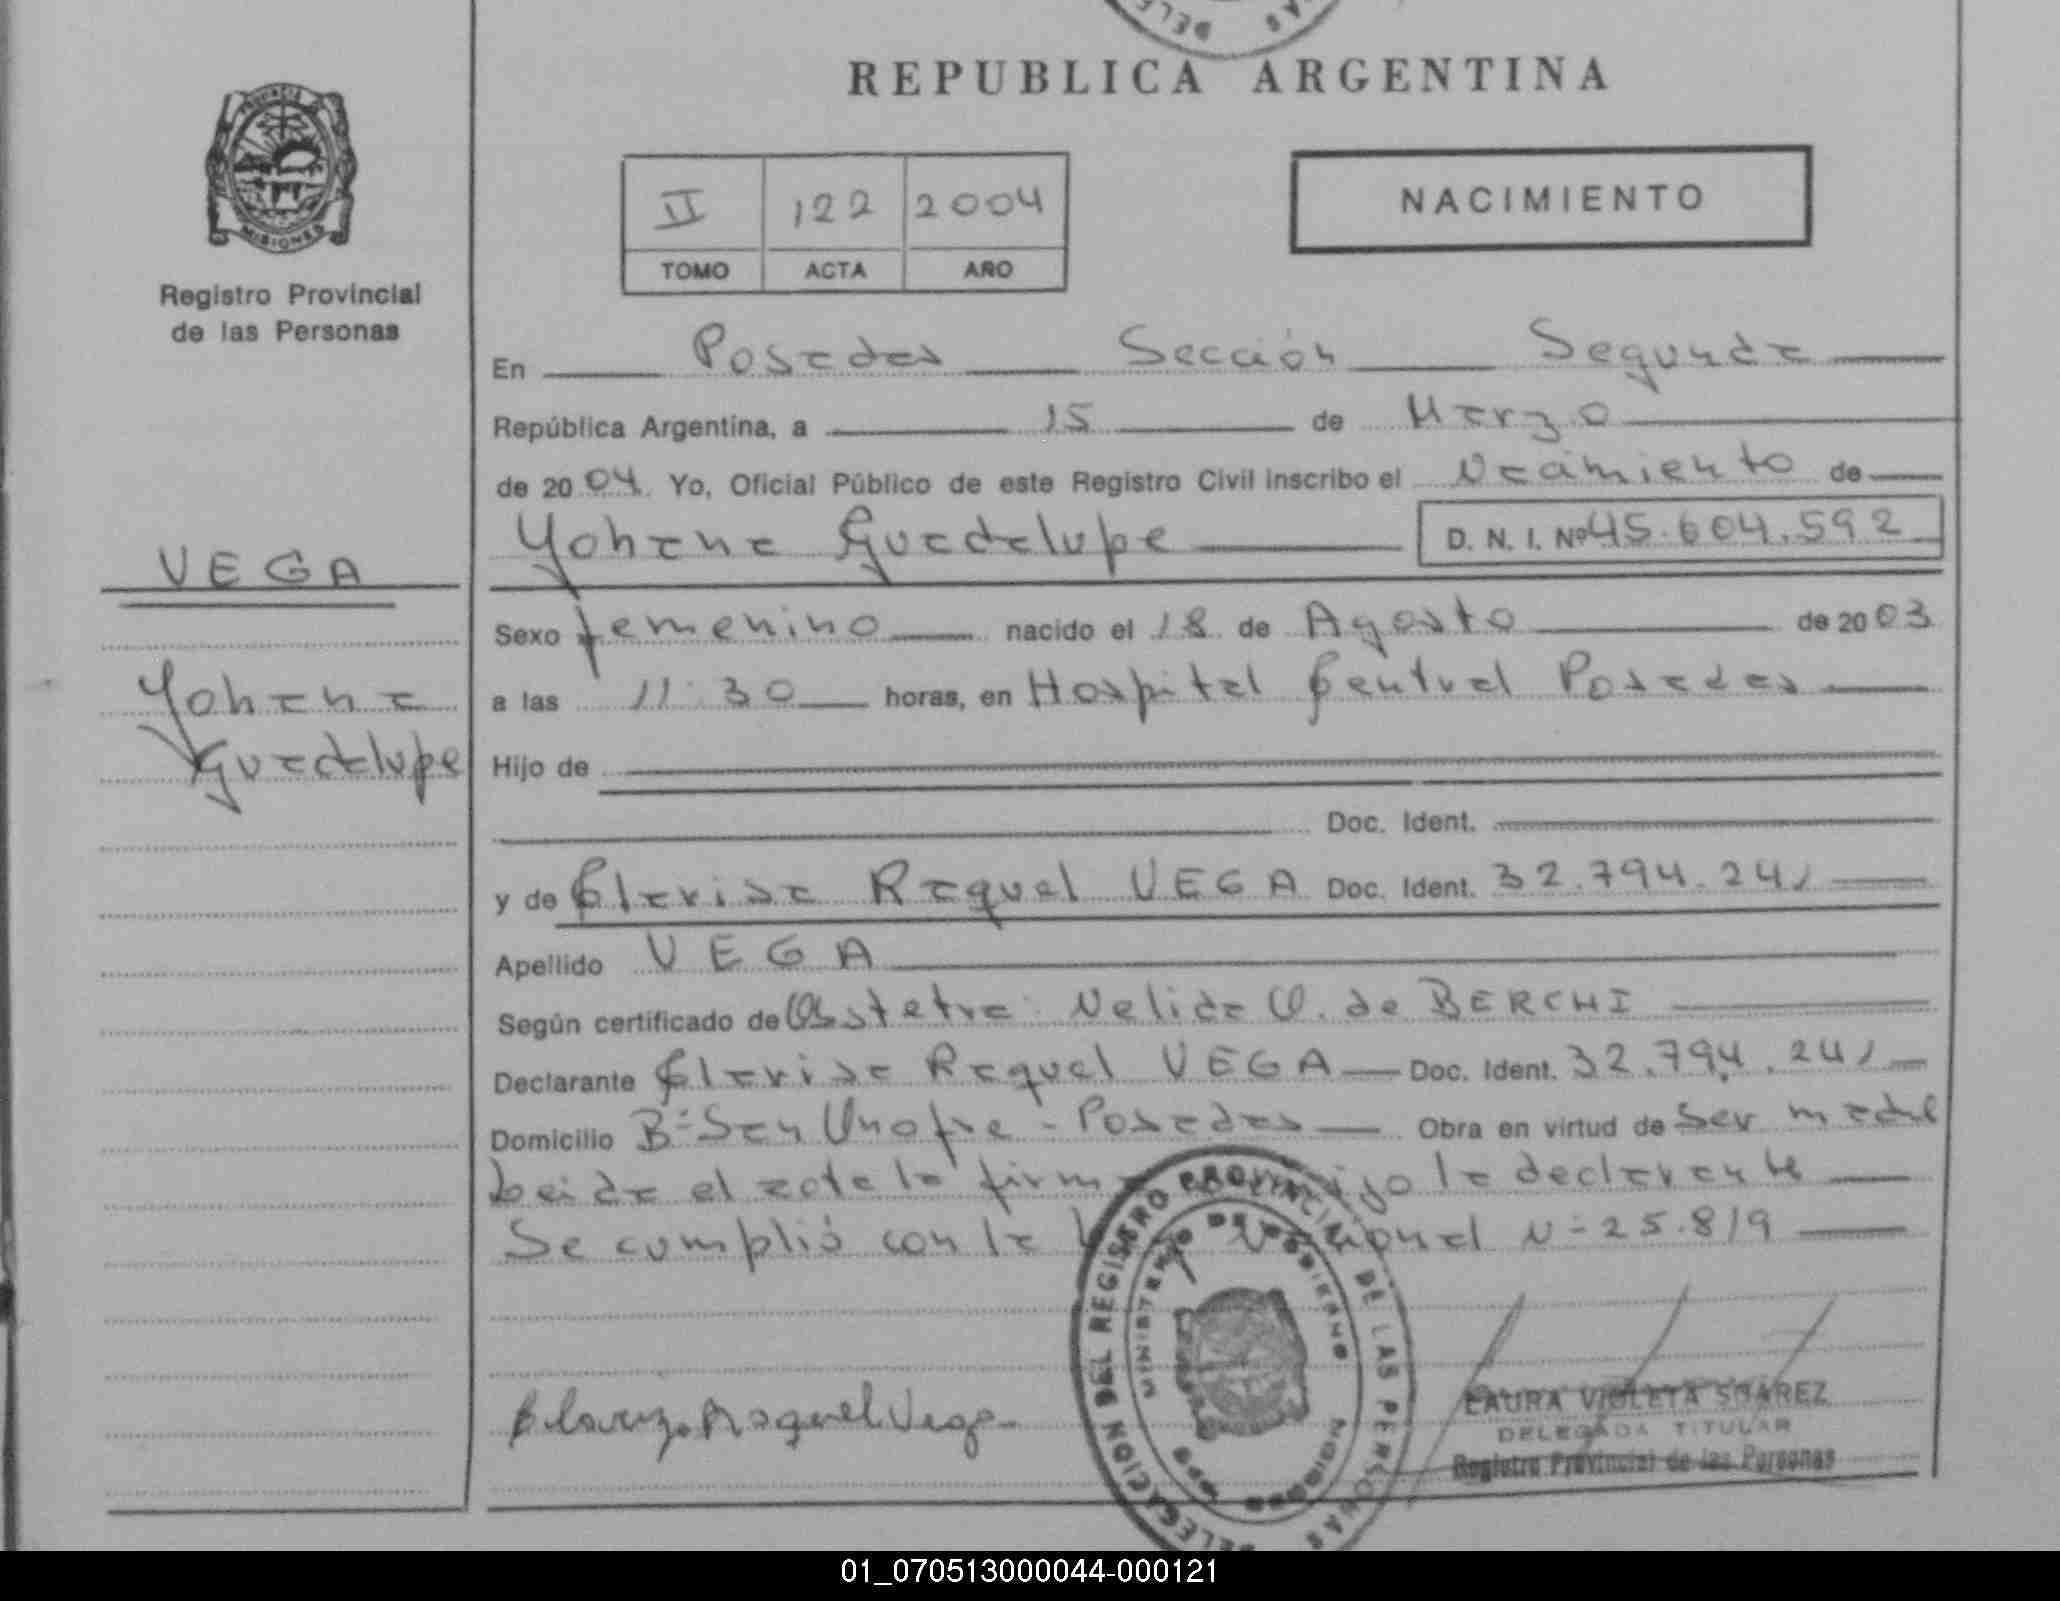 REPUBLICA ARGENTINA
PROVINCIA DE
MISIONES
Registro Provincial
de las Personas
II 122 2004
TOMO ACTA AÑO
NACIMIENTO
En Posadas Sección Segunda
República Argentina, a 15 de Marzo
de 2004 Yo, Oficial Público de este Registro Civil inscribo el Nacimiento de
Yohana Guadalupe D. N. I. Nº 45.604.592
VEGA
Yohana
Guadalupe
Sexo femenino nacido el 18 de Agosto de 2003
a las 11:30 horas, en Hospital Central Posadas
Hijo de
Doc. Ident.
y de Clarisa Raquel VEGA Doc. Ident. 32.794.241
Apellido VEGA
Según certificado de Obstetra: Nelida O. de BERCHI
Declarante Clarisa Raquel VEGA Doc. Ident. 32.794.241
Domicilio Bº San Onofre - Posadas Obra en virtud de ser madre
Leida el acta la firma la declarante
Se cumplió con la Nacional Nº 25.819
DELEGACION DEL REGISTRO PROVINCIAL DE LAS PERSONAS
MINISTERIO DE GOBIERNO
Clariza Raquel Vega
LAURA VIOLETA SUAREZ
DELEGADA TITULAR
Registro Provincial de las Personas
01_070513000044-000121